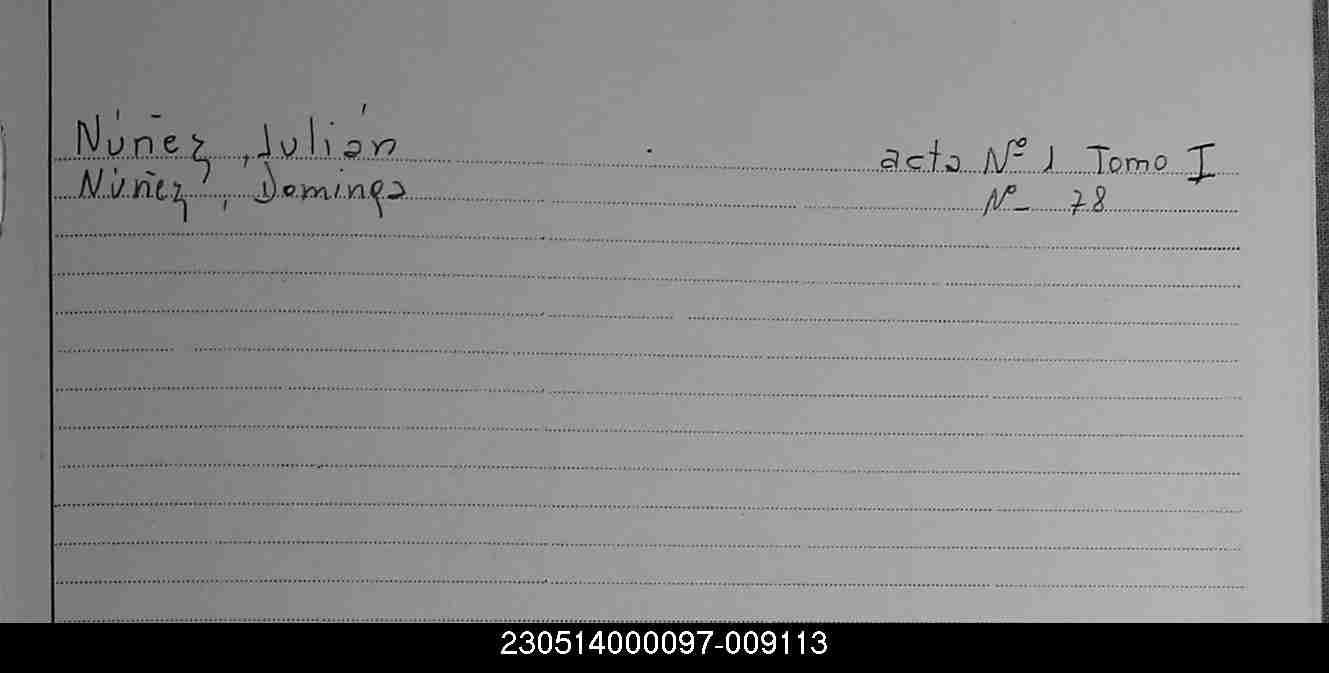 Núñez, Julián acta Nº 1 Tomo I
Núñez, Dominga Nº 78
230514000097-009113